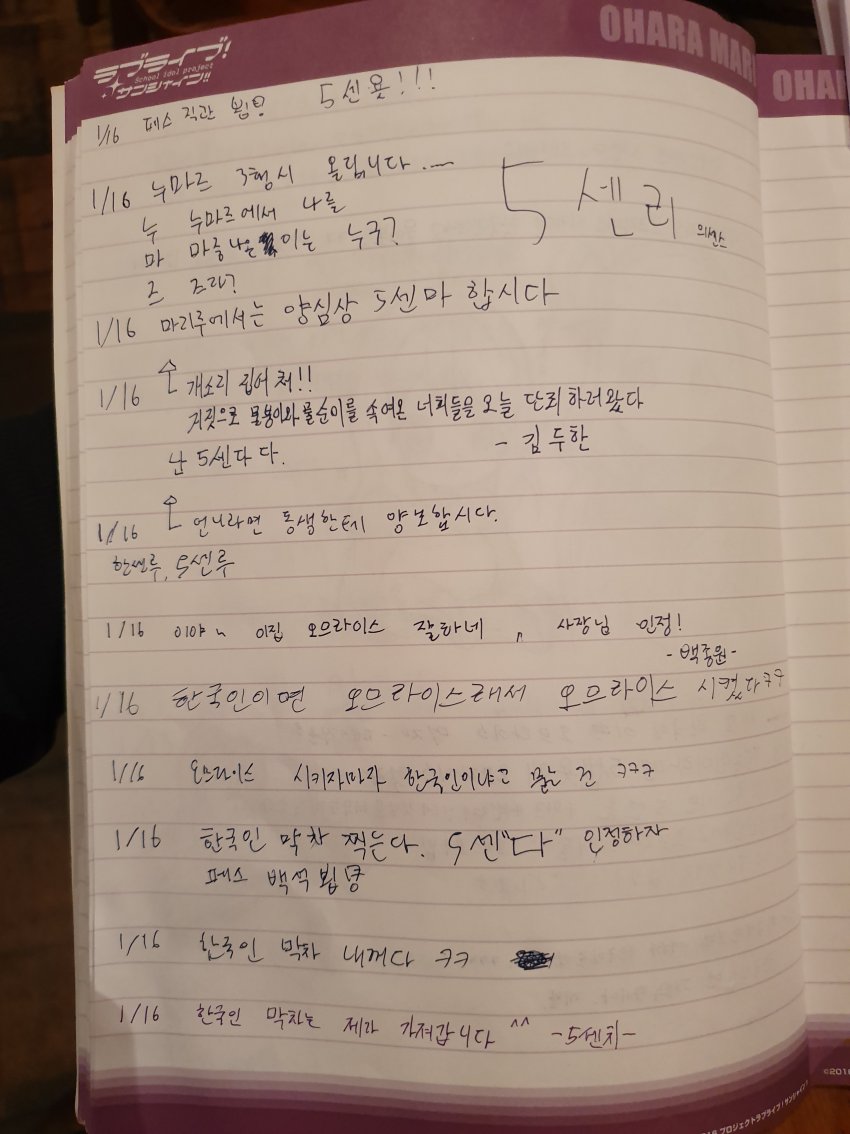 OHARA MARI
OHAR
ラブライブ!
School idol project
サンシャイン!!
1/16 페스 직관 뵙
5센욧!!!
1/16 누마즈 3행시 올립니다....
누 누마즈에서 나를
마 마중나온 이는 누구?
즈 즈라?
5센리 의센스
1/16 마리루에서는 양심상 5센마 합시다
1/16 개소리 집어쳐!!
거짓으로 물붕이와 물순이를 속여온 너희들을 오늘 단죄하러왔다
- 김두한
난 5센다다.
1/16 언니라면 동생한테 양보합시다.
한센루, 5센루
1/16 이야~ 이집 오므라이스 잘하네, 사장님 인정!
-백종원-
1/16 한국인이면 오므라이스래서 오므라이스 시켰다ㅋㅋ
1/16 오므라이스 시키자마자 한국인이냐고 묻는 건 ㅋㅋㅋ
1/16 한국인 막차 찍는다. 5센"다" 인정하자
페스 백석 뵙
1/16 한국인 막차 내꺼다 ㅋㅋ
1/16 한국인 막차는 제가 가져갑니다 ^^ -5센치-
プロジェクトラブライブ!サンシャイン!!